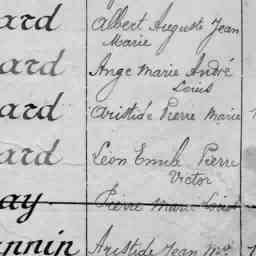 ard Albert Auguste Jean
Marie
ard Ange Marie André
Louis
ard Aristide Pierre Marie
ard Léon Emile Pierre
Victor
ay Pierre Marie Louis
nnin Aristide Jean Mie